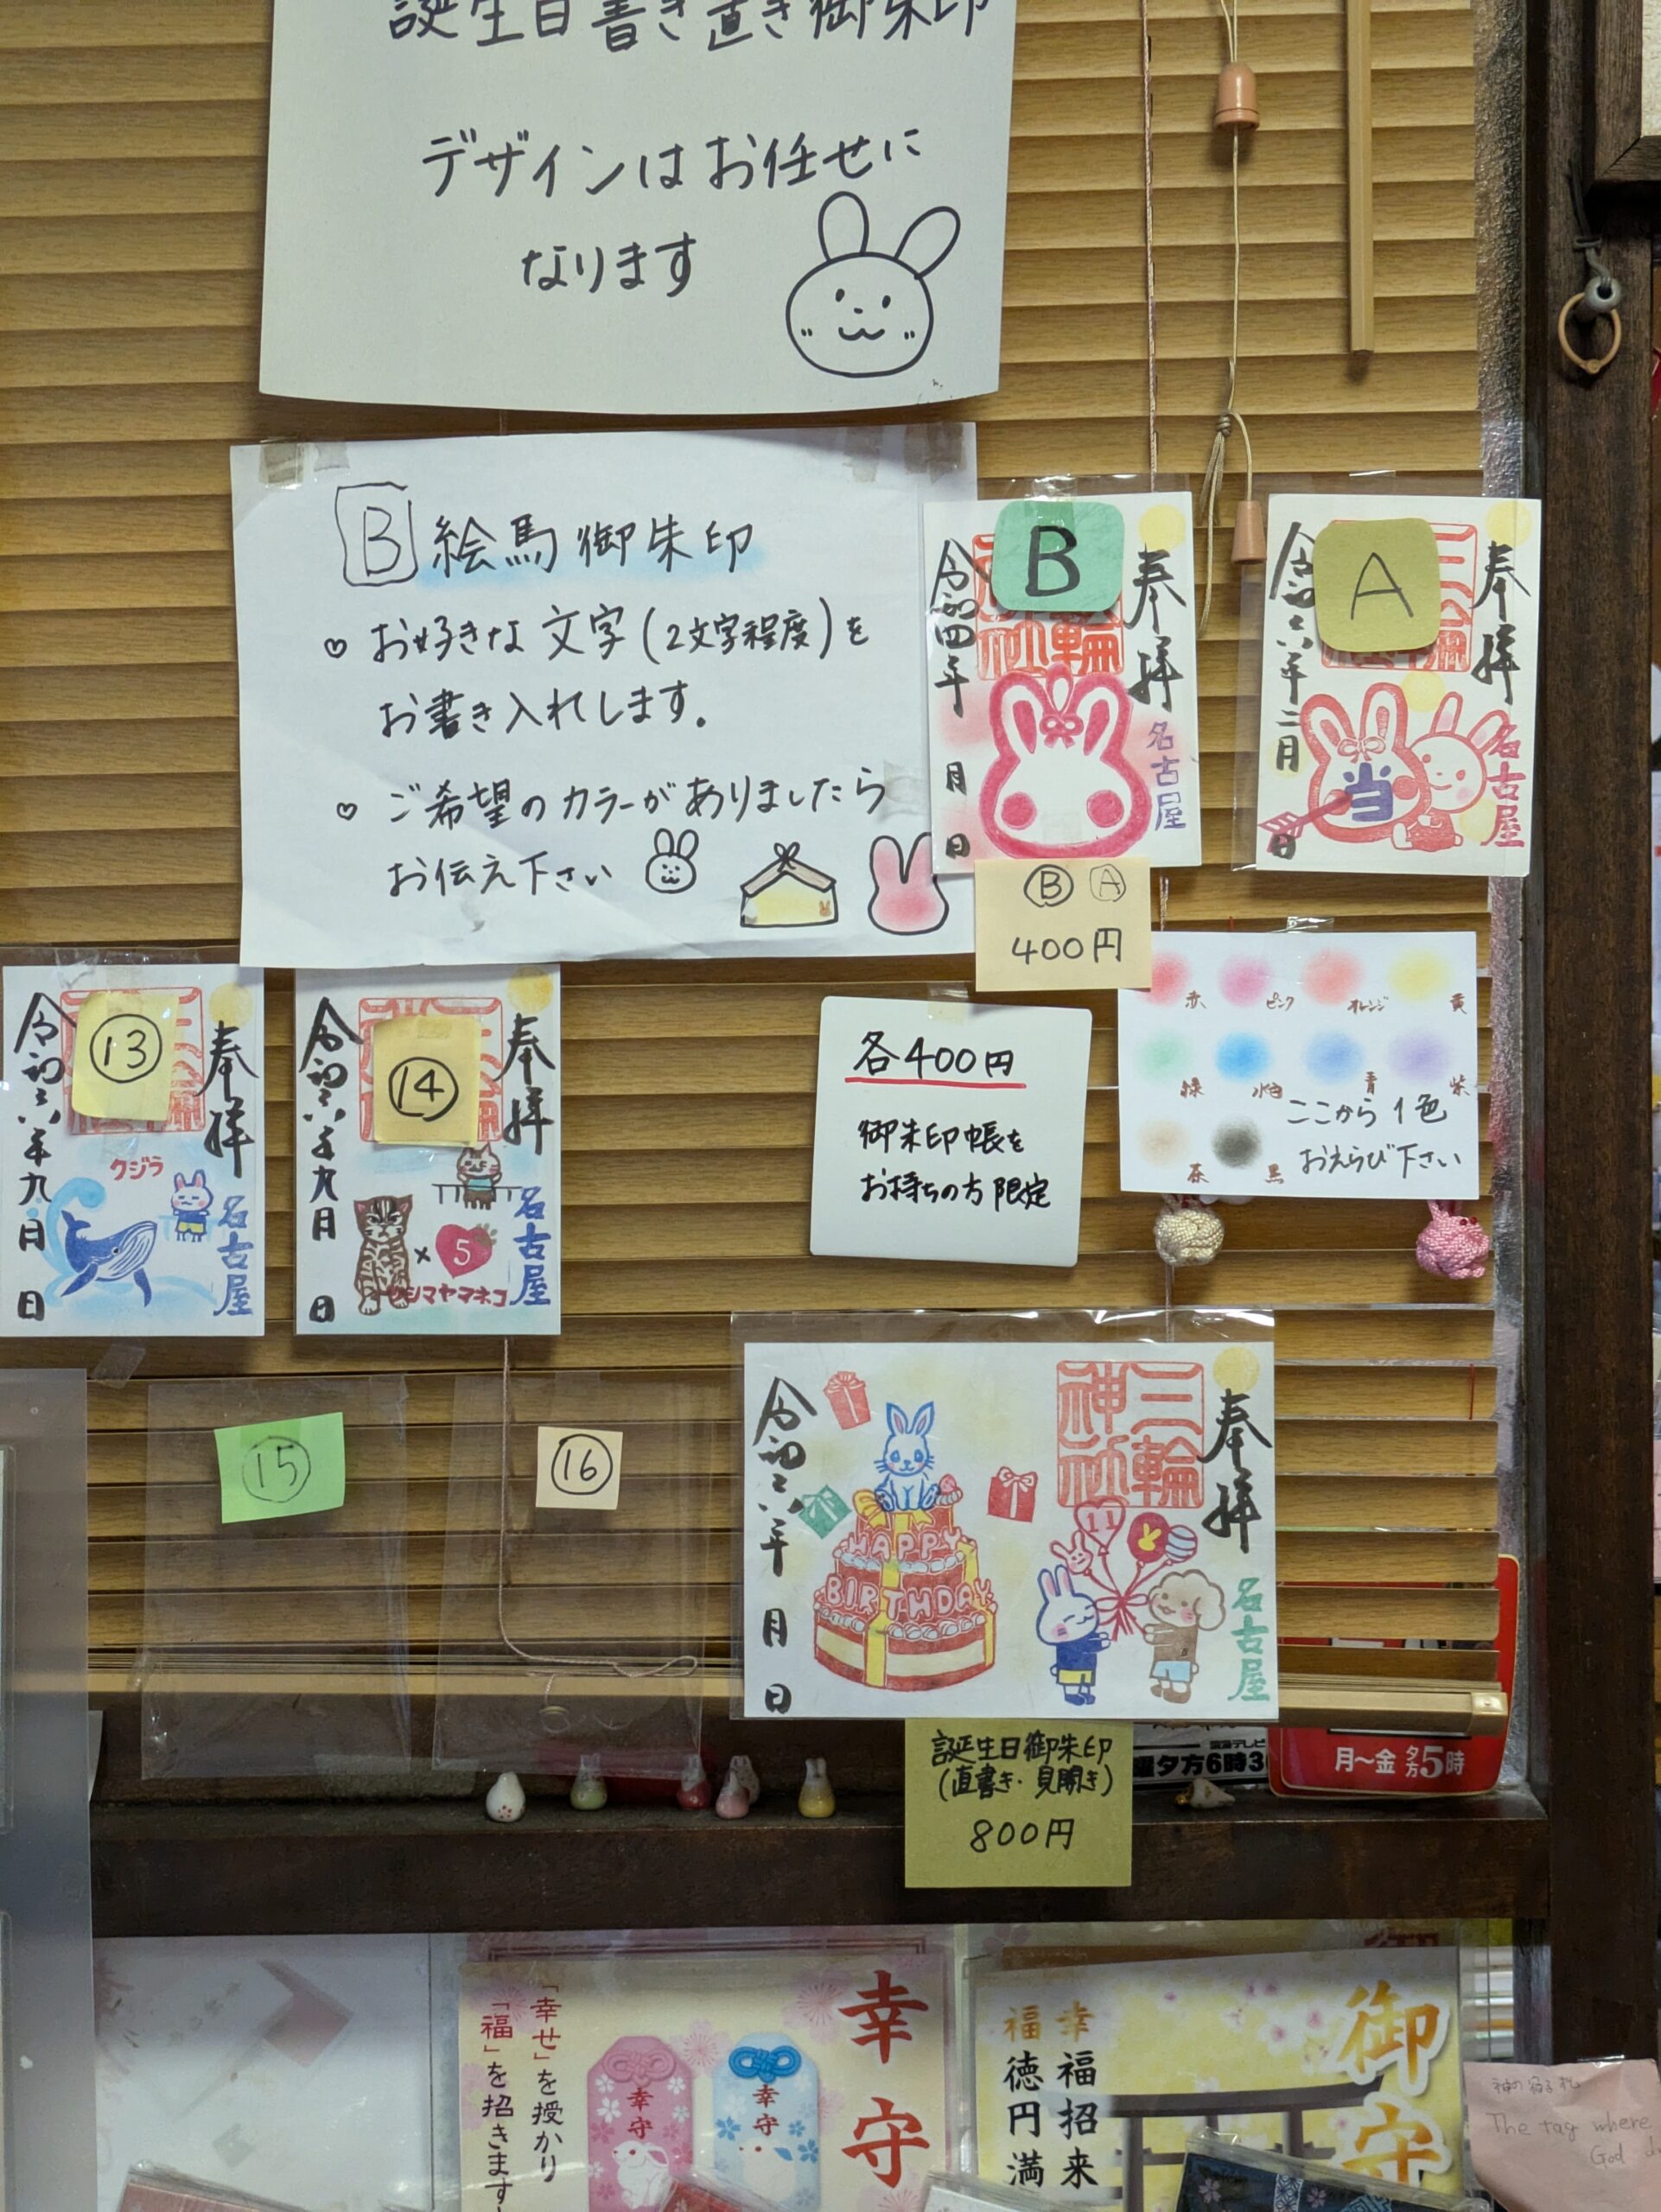 誕生日書き置き御朱印
デザインはお任せに
なります
B 絵馬御朱印
♡ お好きな文字(2文字程度)を
お書き入れします。
♡ ご希望のカラーがありましたら
お伝え下さい
B
奉拝
三輪神社
名古屋
令和四年 月 日
A
奉拝
名古屋
当
令和六年二月 日
Ⓑ Ⓐ
400円
赤 ピンク オレンジ 黄
緑 水色 青 紫
茶 黒
ここから1色
おえらび下さい
各400円
御朱印帳を
お持ちの方限定
⑬
奉拝
名古屋
クジラ
令和六年九月 日
⑭
奉拝
名古屋
×5
ツシマヤマネコ
令和六年九月 日
⑮
⑯
奉拝
三輪神社
名古屋
11
HAPPY
BIRTHDAY
令和六年 月 日
誕生日御朱印
(直書き・見開き)
800円
曜夕方6時3
月～金 夕方5時
幸守
「幸せ」を授かり
「福」を招きます
幸守
幸守
御守
幸福招来
福徳円満
The tag where
God